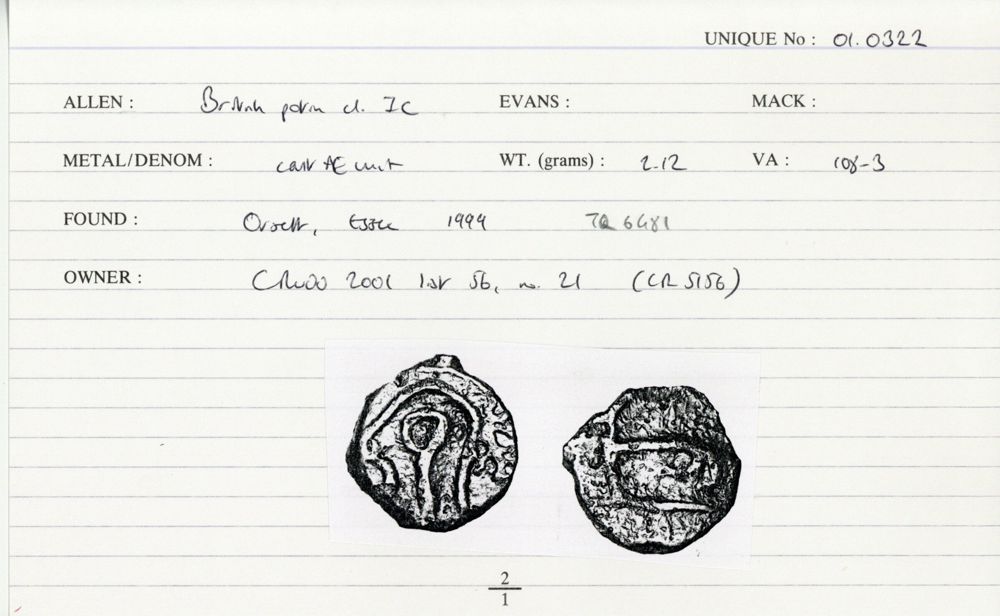 UNIQUE No : 01.0322
ALLEN : British potin cl. IC EVANS : MACK :
METAL/DENOM : cast AE unit WT. (grams) : 2.12 VA : 108-3
FOUND : Orsett, Essex 1999 TQ 6481
OWNER : CRudd 2001 list 56, no. 21 (CR 5156)
2
1